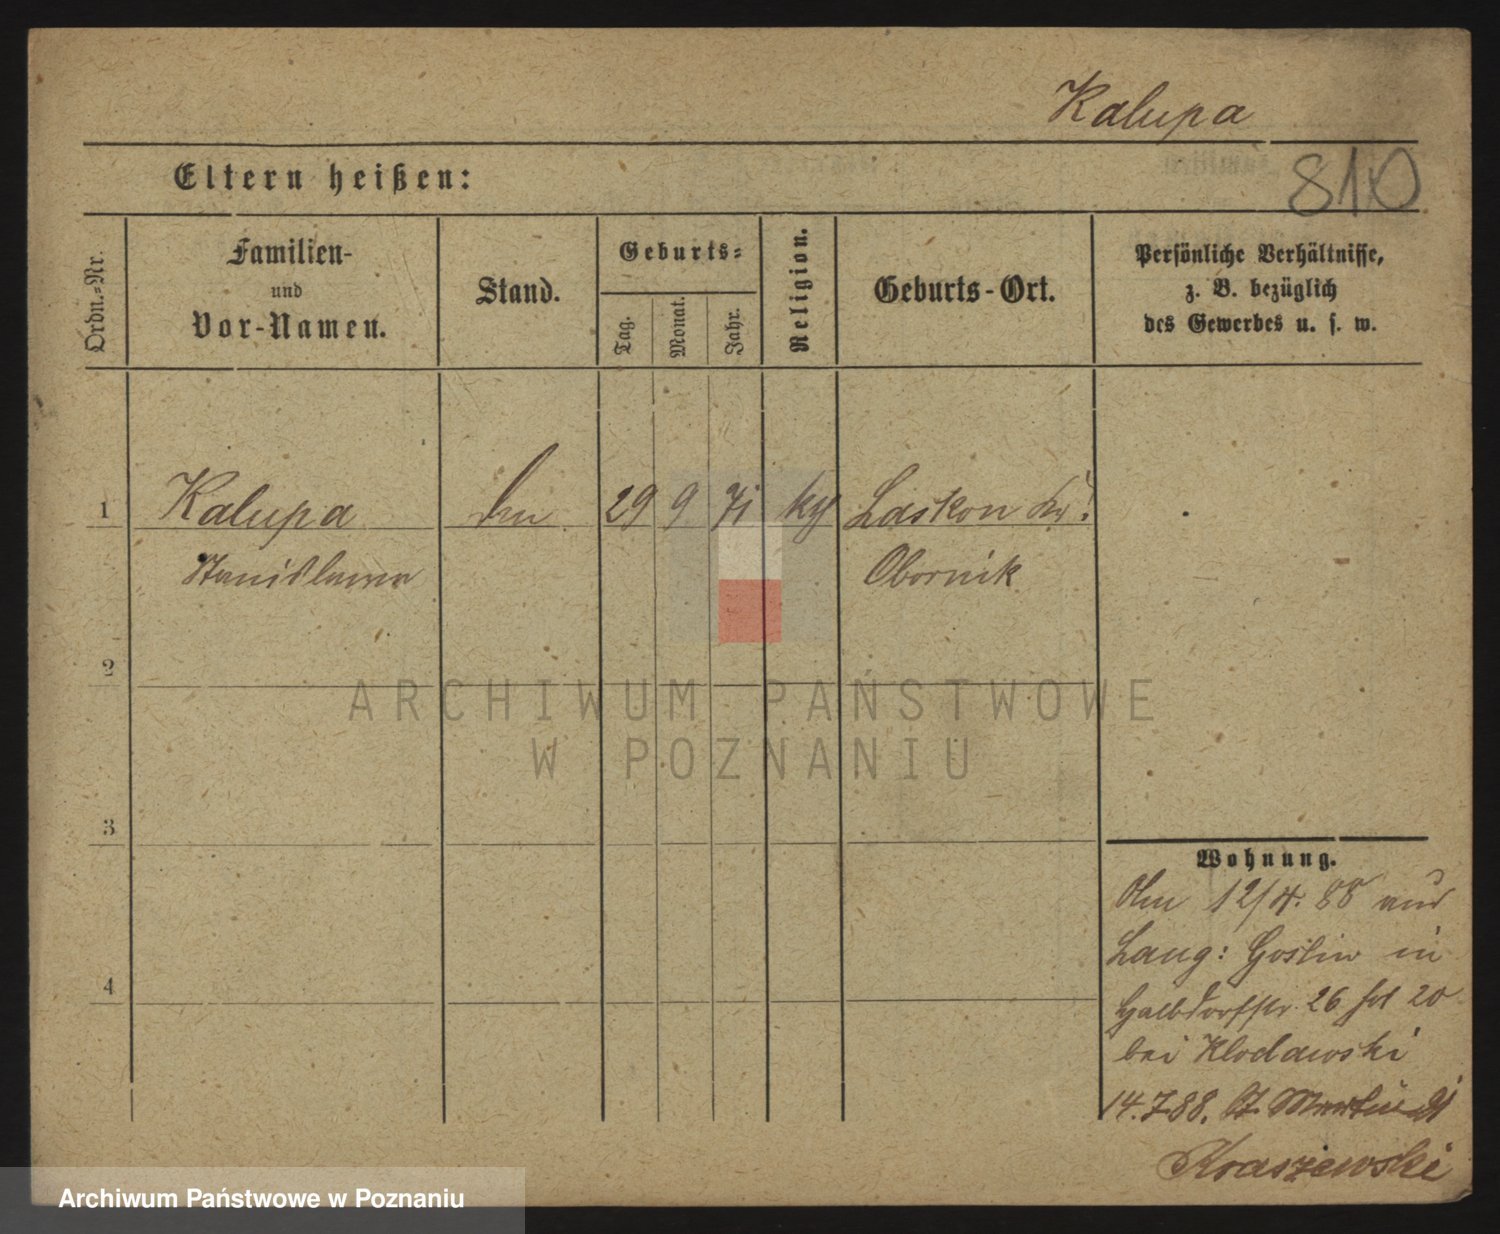 Kalupa
810
Eltern heißen:
Ordn.-Nr.
Familien-
und
Vor-Namen.
Stand.
Geburts-
Tag.
Monat.
Jahr.
Religion.
Geburts-Ort.
Persönliche Verhältnisse,
z. B. bezüglich
des Gewerbes u. s. w.
1 Kalupa 29 9 71 Laskon Kr!
Stanislawa Obornik
2
3
4
ARCHIWUM PAŃSTWOWE
W POZNANIU
Wohnung.
12/4. 88
Lang: Goslin in
26 20
bei Klodawski
14.7.88. St. Martin
Kraszewski
Archiwum Państwowe w Poznaniu